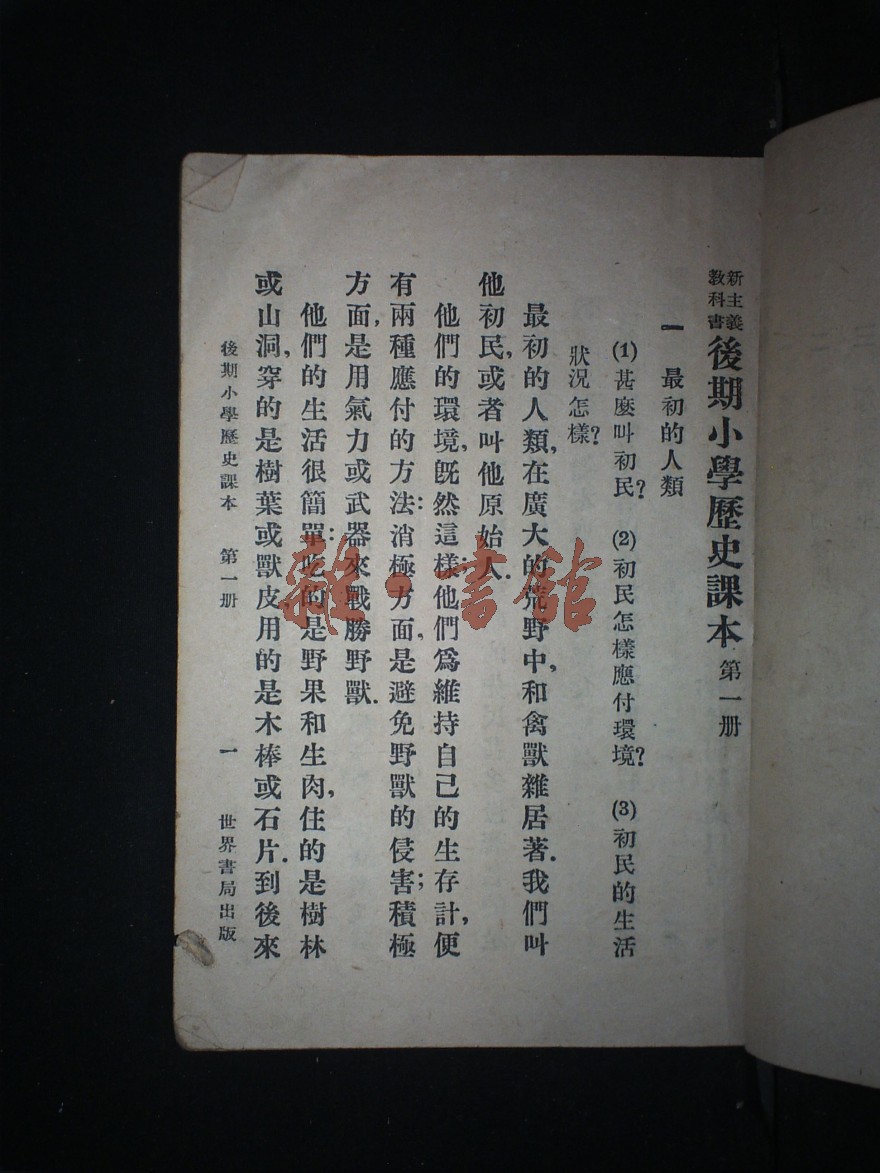 新主義
教科書
後期小學歷史課本 第一册
一 最初的人類
(1)甚麽叫初民？ (2)初民怎樣應付環境？ (3)初民的生活
狀况怎樣？
最初的人類，在廣大的荒野中，和禽獸雜居著．我們叫
他初民，或者叫他原始人．
他們的環境，旣然這樣；他們爲維持自己的生存計，便
有兩種應付的方法：消極方面，是避免野獸的侵害；積極
方面，是用氣力或武器來戰勝野獸．
他們的生活很簡單：吃的是野果和生肉，住的是樹林
或山洞，穿的是樹葉或獸皮，用的是木棒或石片．到後來
後期小學歷史課本 第一册 一 世界書局出版
雜·書館